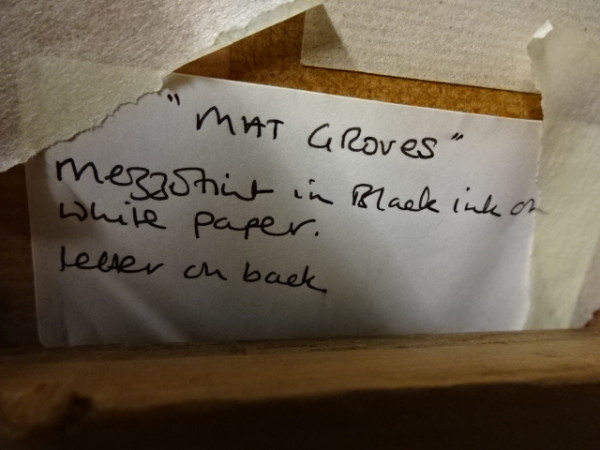 "MAT GROVES"
Mezzotint in Black ink on
white paper.
letter on back